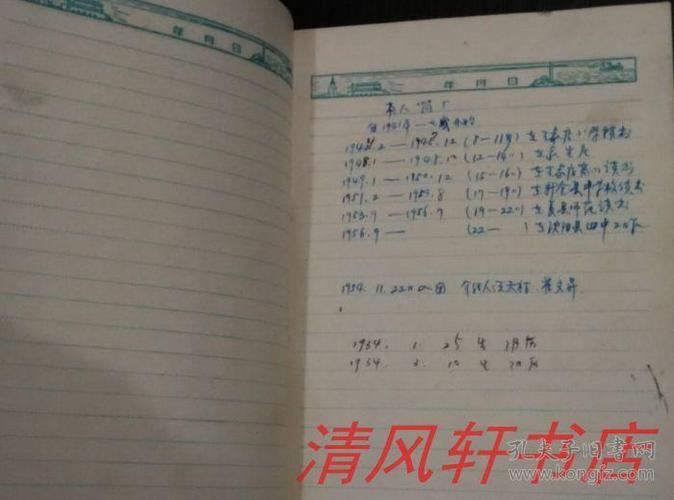 年 月 日
年 月 日
本人简
自1941年
1942.2 — 1945.12 (8—11岁) 在王家店小学读书
1948.1 — 1948.12 (12—14) 在家生产
1949.1 — 1950.12 (15—16) 在王家店高小读书
1951.2 — 1953.8 (17—19) 在 县中学校读书
1953.9 — 1956.7 (19—22) 在 县师范读书
1956.9 — (22— ) 在沈阳县四中工作
1954.11.22日入团 介绍人
1934. 1. 25 生 阴历
1934. 3. 10 生 阳历
清风轩书店
孔夫子旧书网
www.kongfz.com